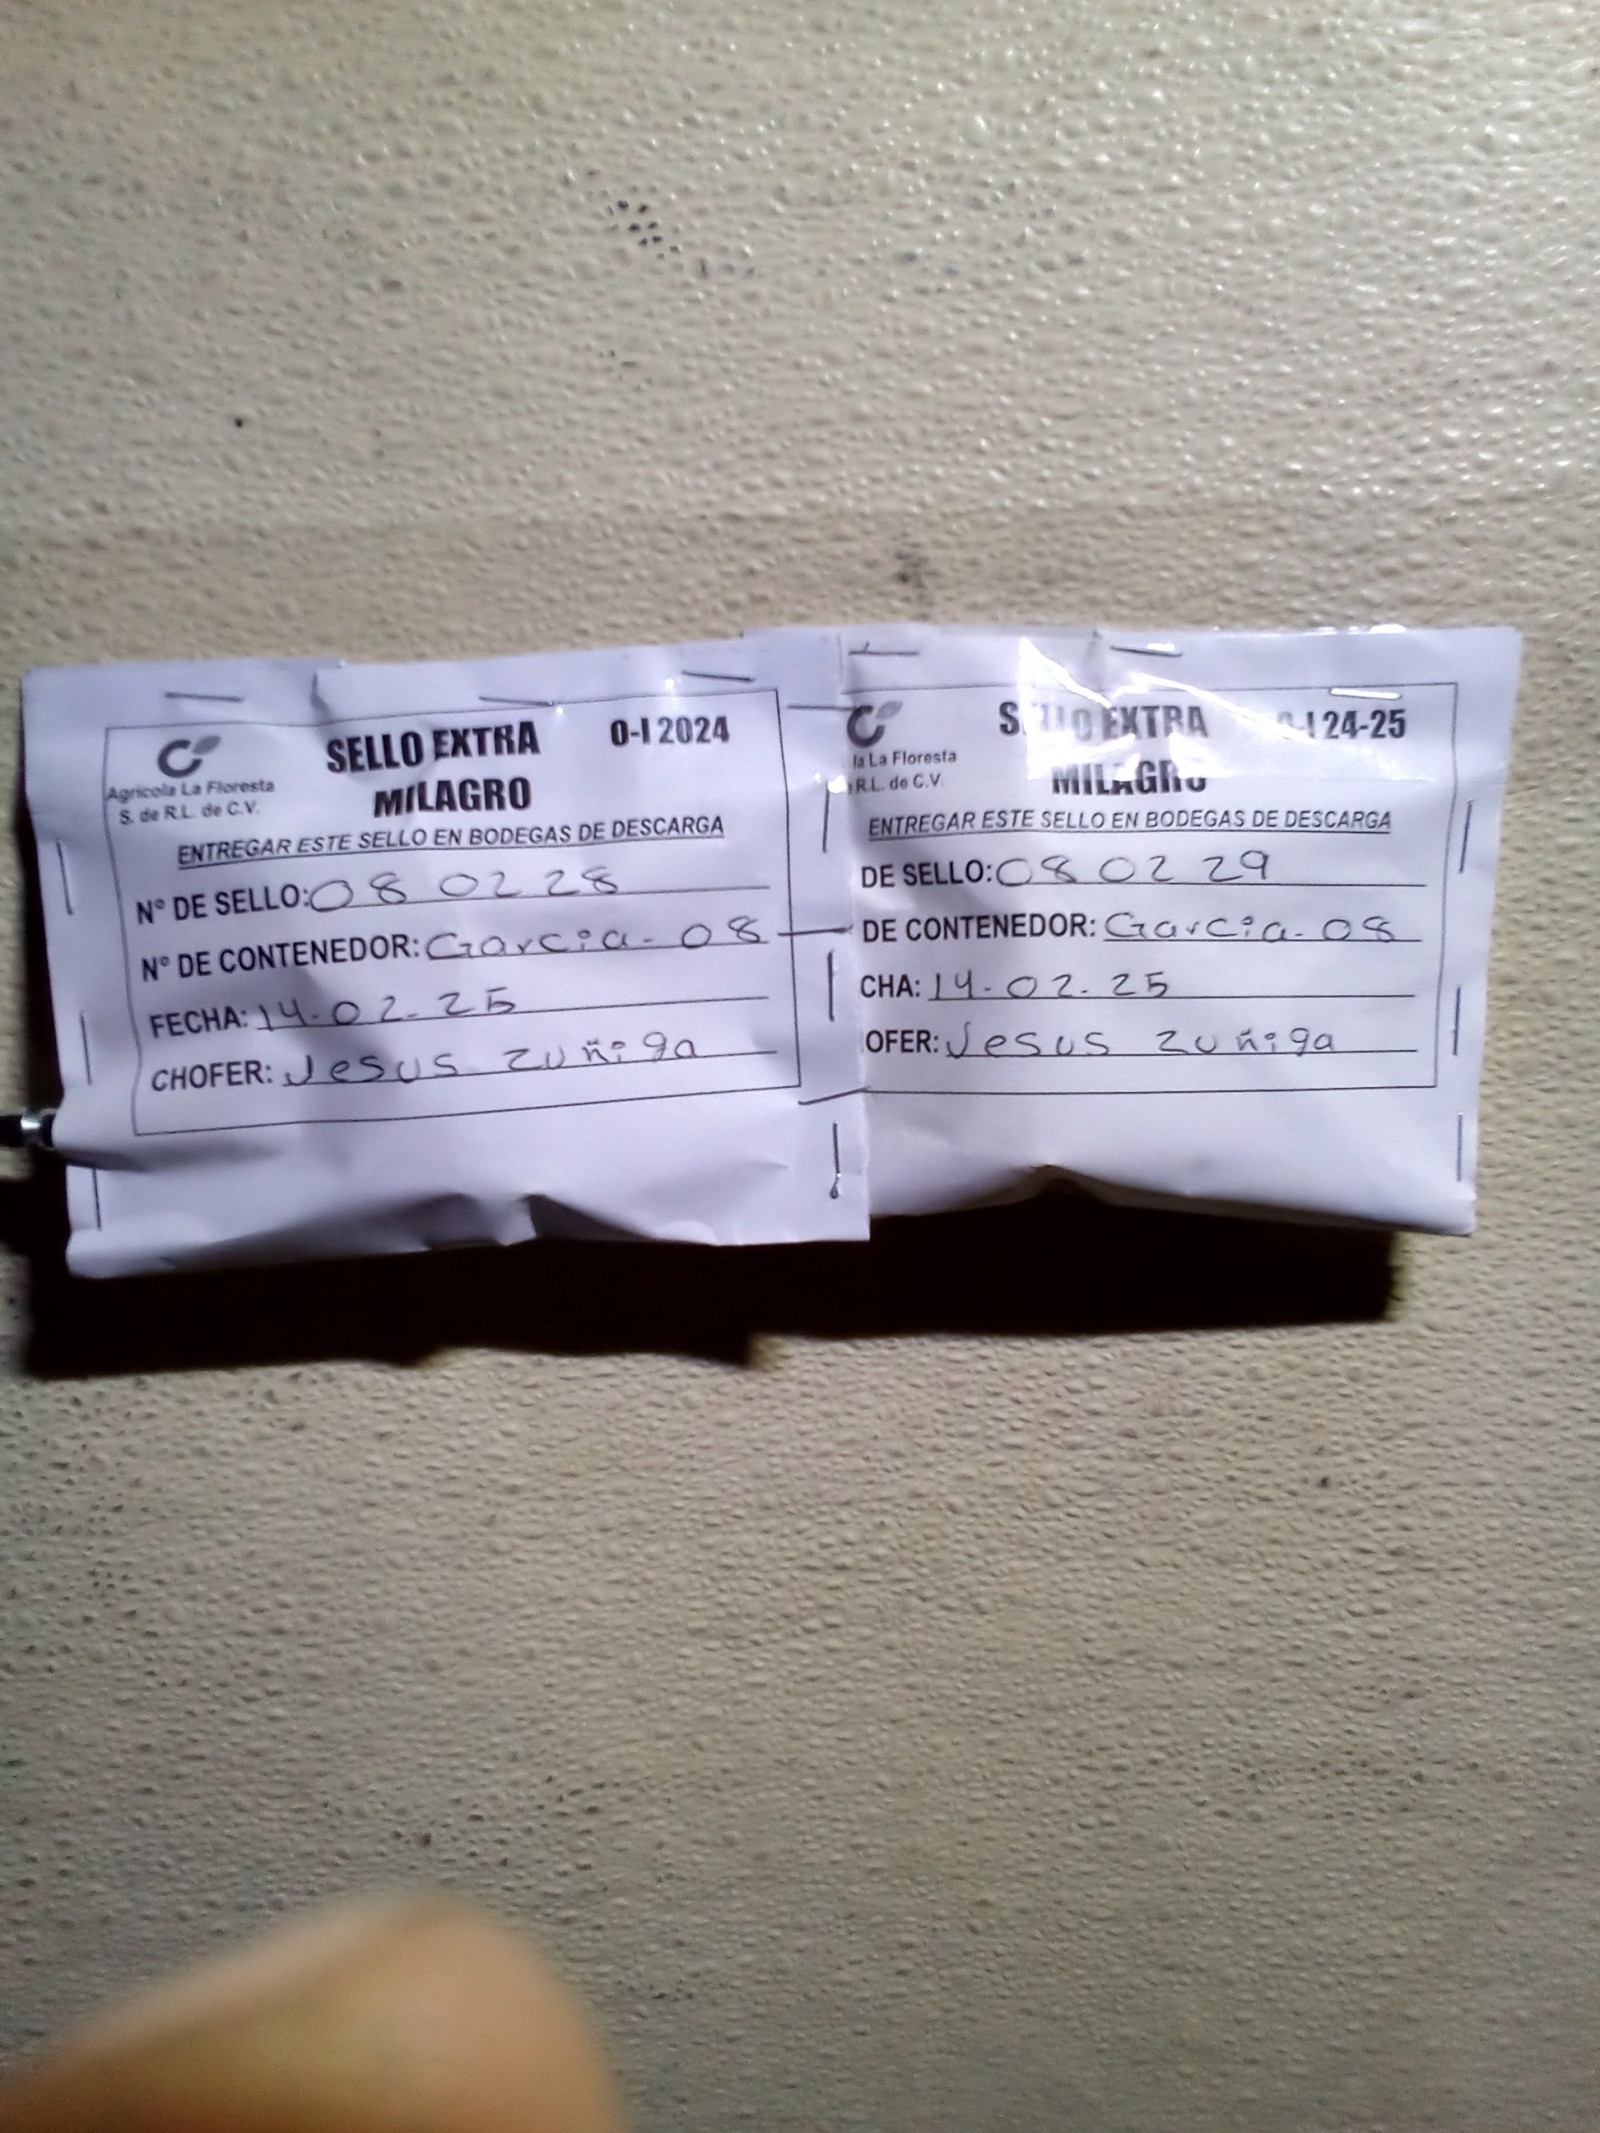 Agricola La Floresta
S. de R.L. de C.V.
SELLO EXTRA
MILAGRO
O-I 2024
ENTREGAR ESTE SELLO EN BODEGAS DE DESCARGA
N° DE SELLO: 08 02 28
N° DE CONTENEDOR: Garcia- 08
FECHA: 14-02-25
CHOFER: Jesus Zuñiga
la La Floresta
R.L. de C.V.
SELLO EXTRA
MILAGRO
O-I 24-25
ENTREGAR ESTE SELLO EN BODEGAS DE DESCARGA
DE SELLO: 08 02 29
DE CONTENEDOR: Garcia- 08
CHA: 14-02-25
OFER: Jesus Zuñiga